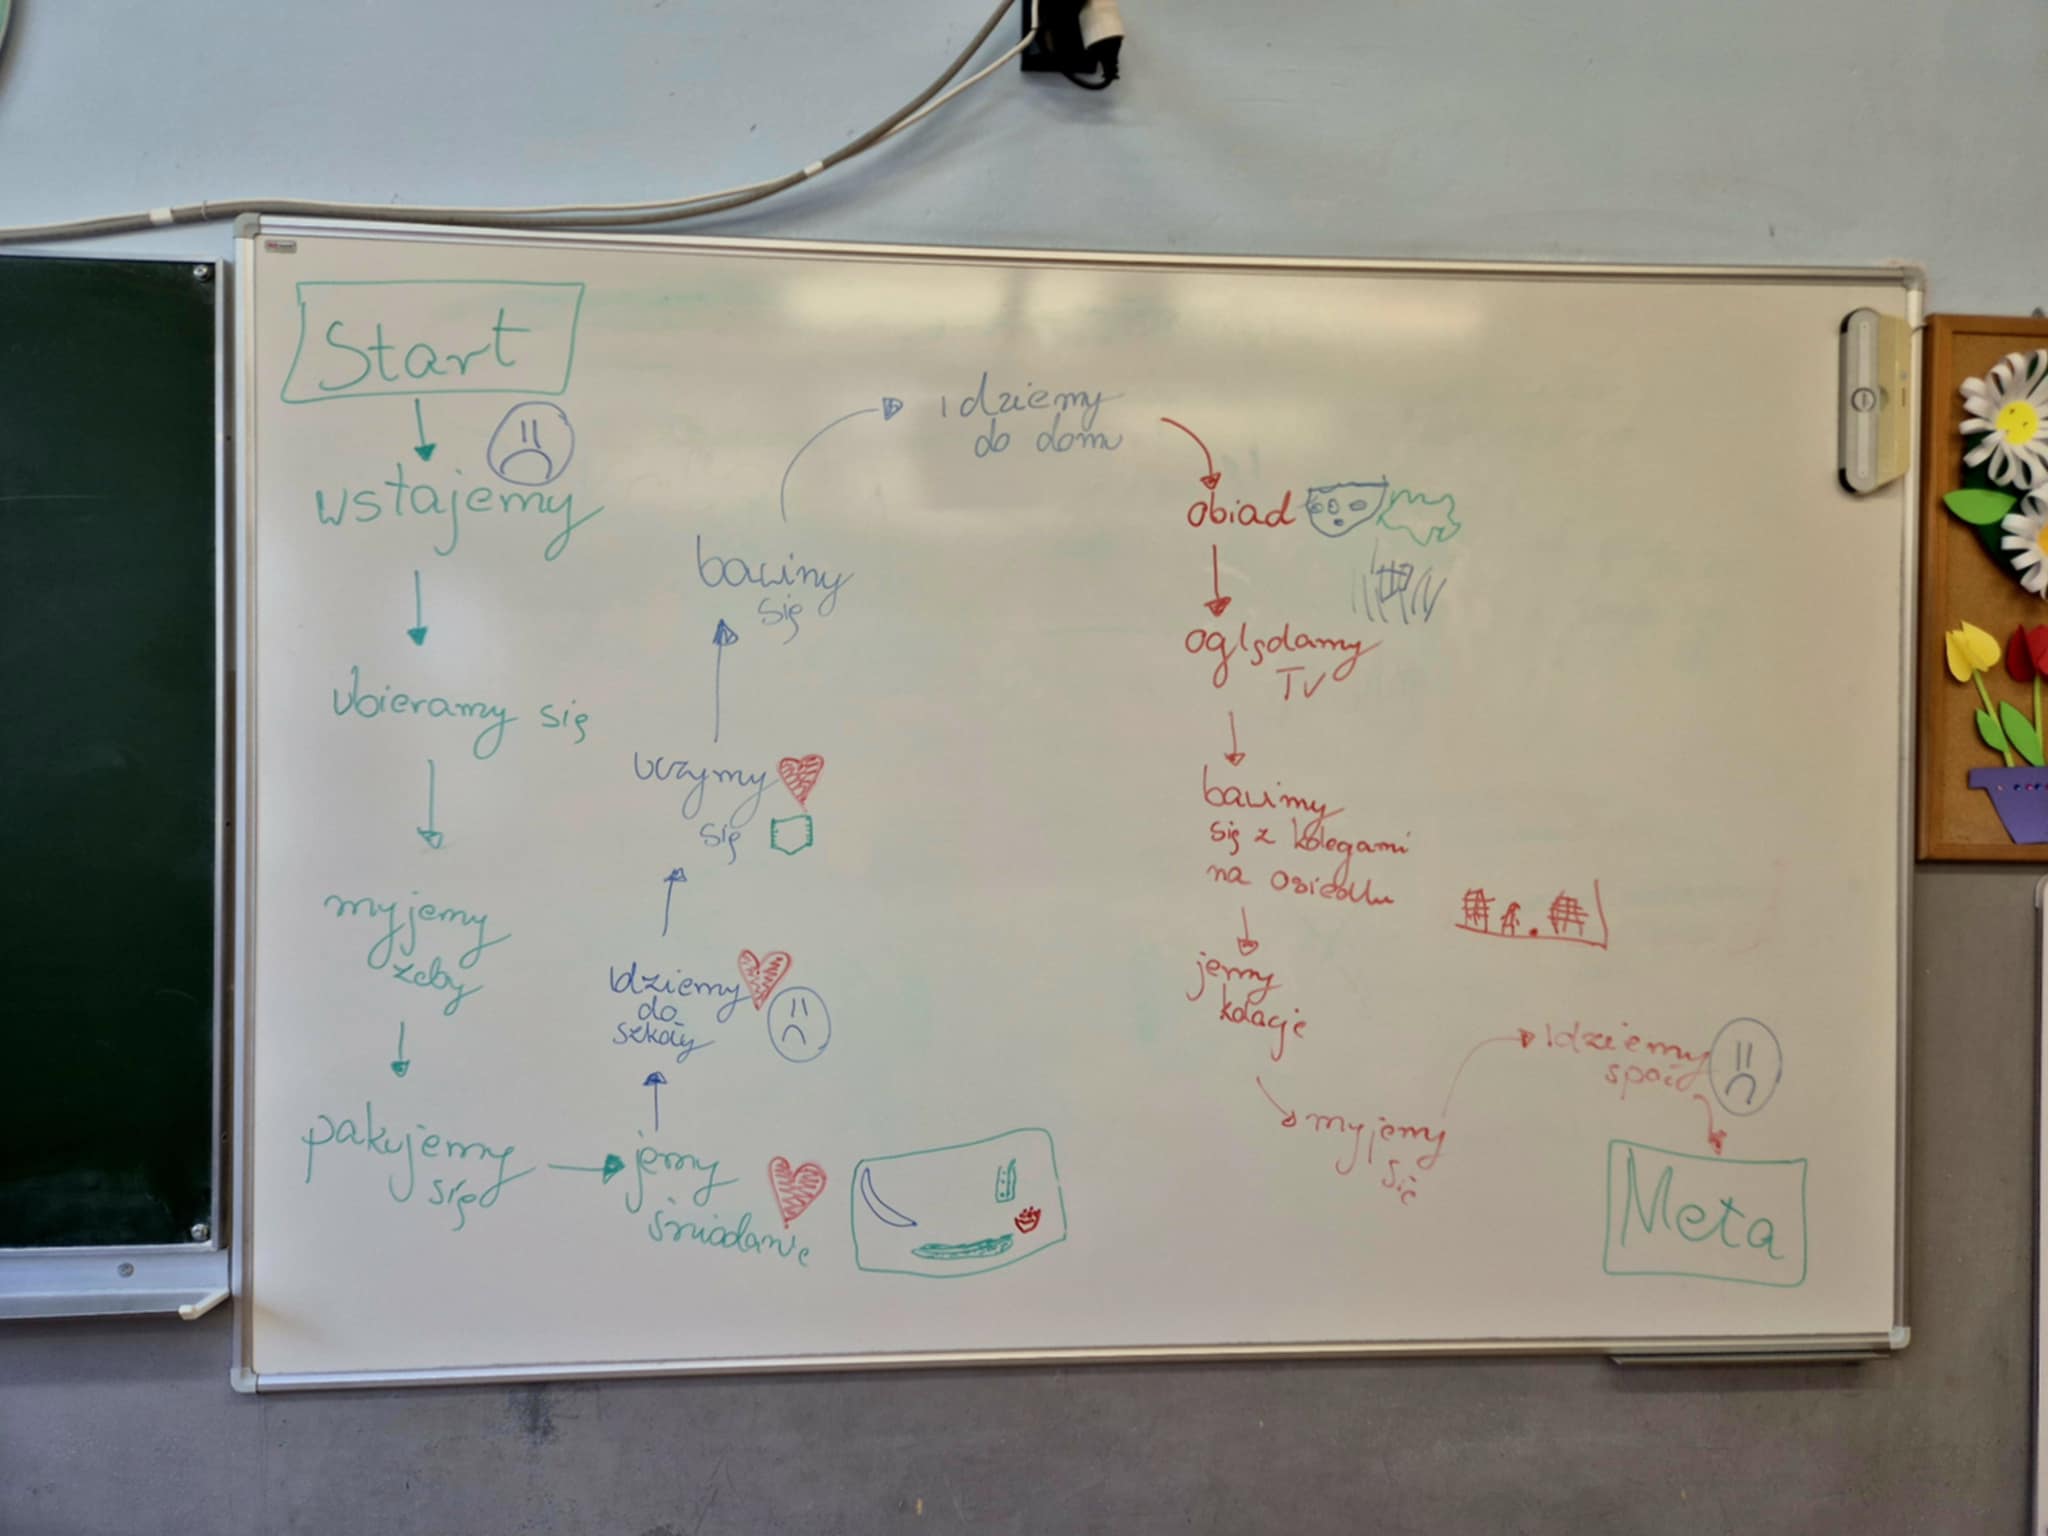 Start
wstajemy
ubieramy się
myjemy
zęby
pakujemy
się
jemy
śniadanie
idziemy
do
szkoły
uczymy
się
bawimy
się
idziemy
do domu
obiad
oglądamy
TV
bawimy
się z kolegami
na osiedlu
jemy
kolacje
myjemy
się
idziemy
spać
Meta